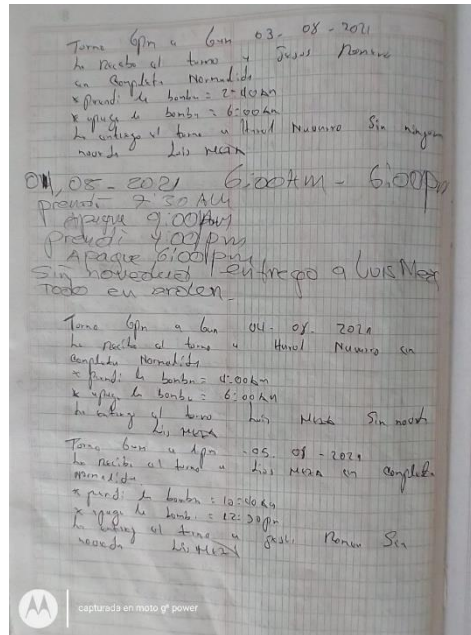 Turno 6pm a 6am 03-08-2021
Le recibo el turno a Jesus Romero
en Completa Normalida
* prendi la bomba = 2:40am
* apage la bomba = 6:00am
Le entrego el turno a Harol Navarro Sin ningun
Luis Meza
04,08-2021 6:00AM - 6:00pm
prendi 7:30 AM
Apague 9:00Am
prendi 4:00pm
Apague 6:00pm
Sin novedad entrego a Luis Mez
Todo en orden
Turno 6pm a 6am 04-08-2021
Le recibo el turno a Harol Navarro en
Completa Normalida
* prendi la bomba = 4:00am
* apage la bomba = 6:00am
Le entrego el turno Luis Meza Sin
Luis Meza
Turno 6am a 6pm -05-08-2021
Le recibo el turno a Luis Meza en completa
Normalida
* prendi la bomba = 10:40am
* apage la bomba = 12:30pm
Le entrego el turno a Romero Sin
Luis Meza
capturada en moto g⁸ power